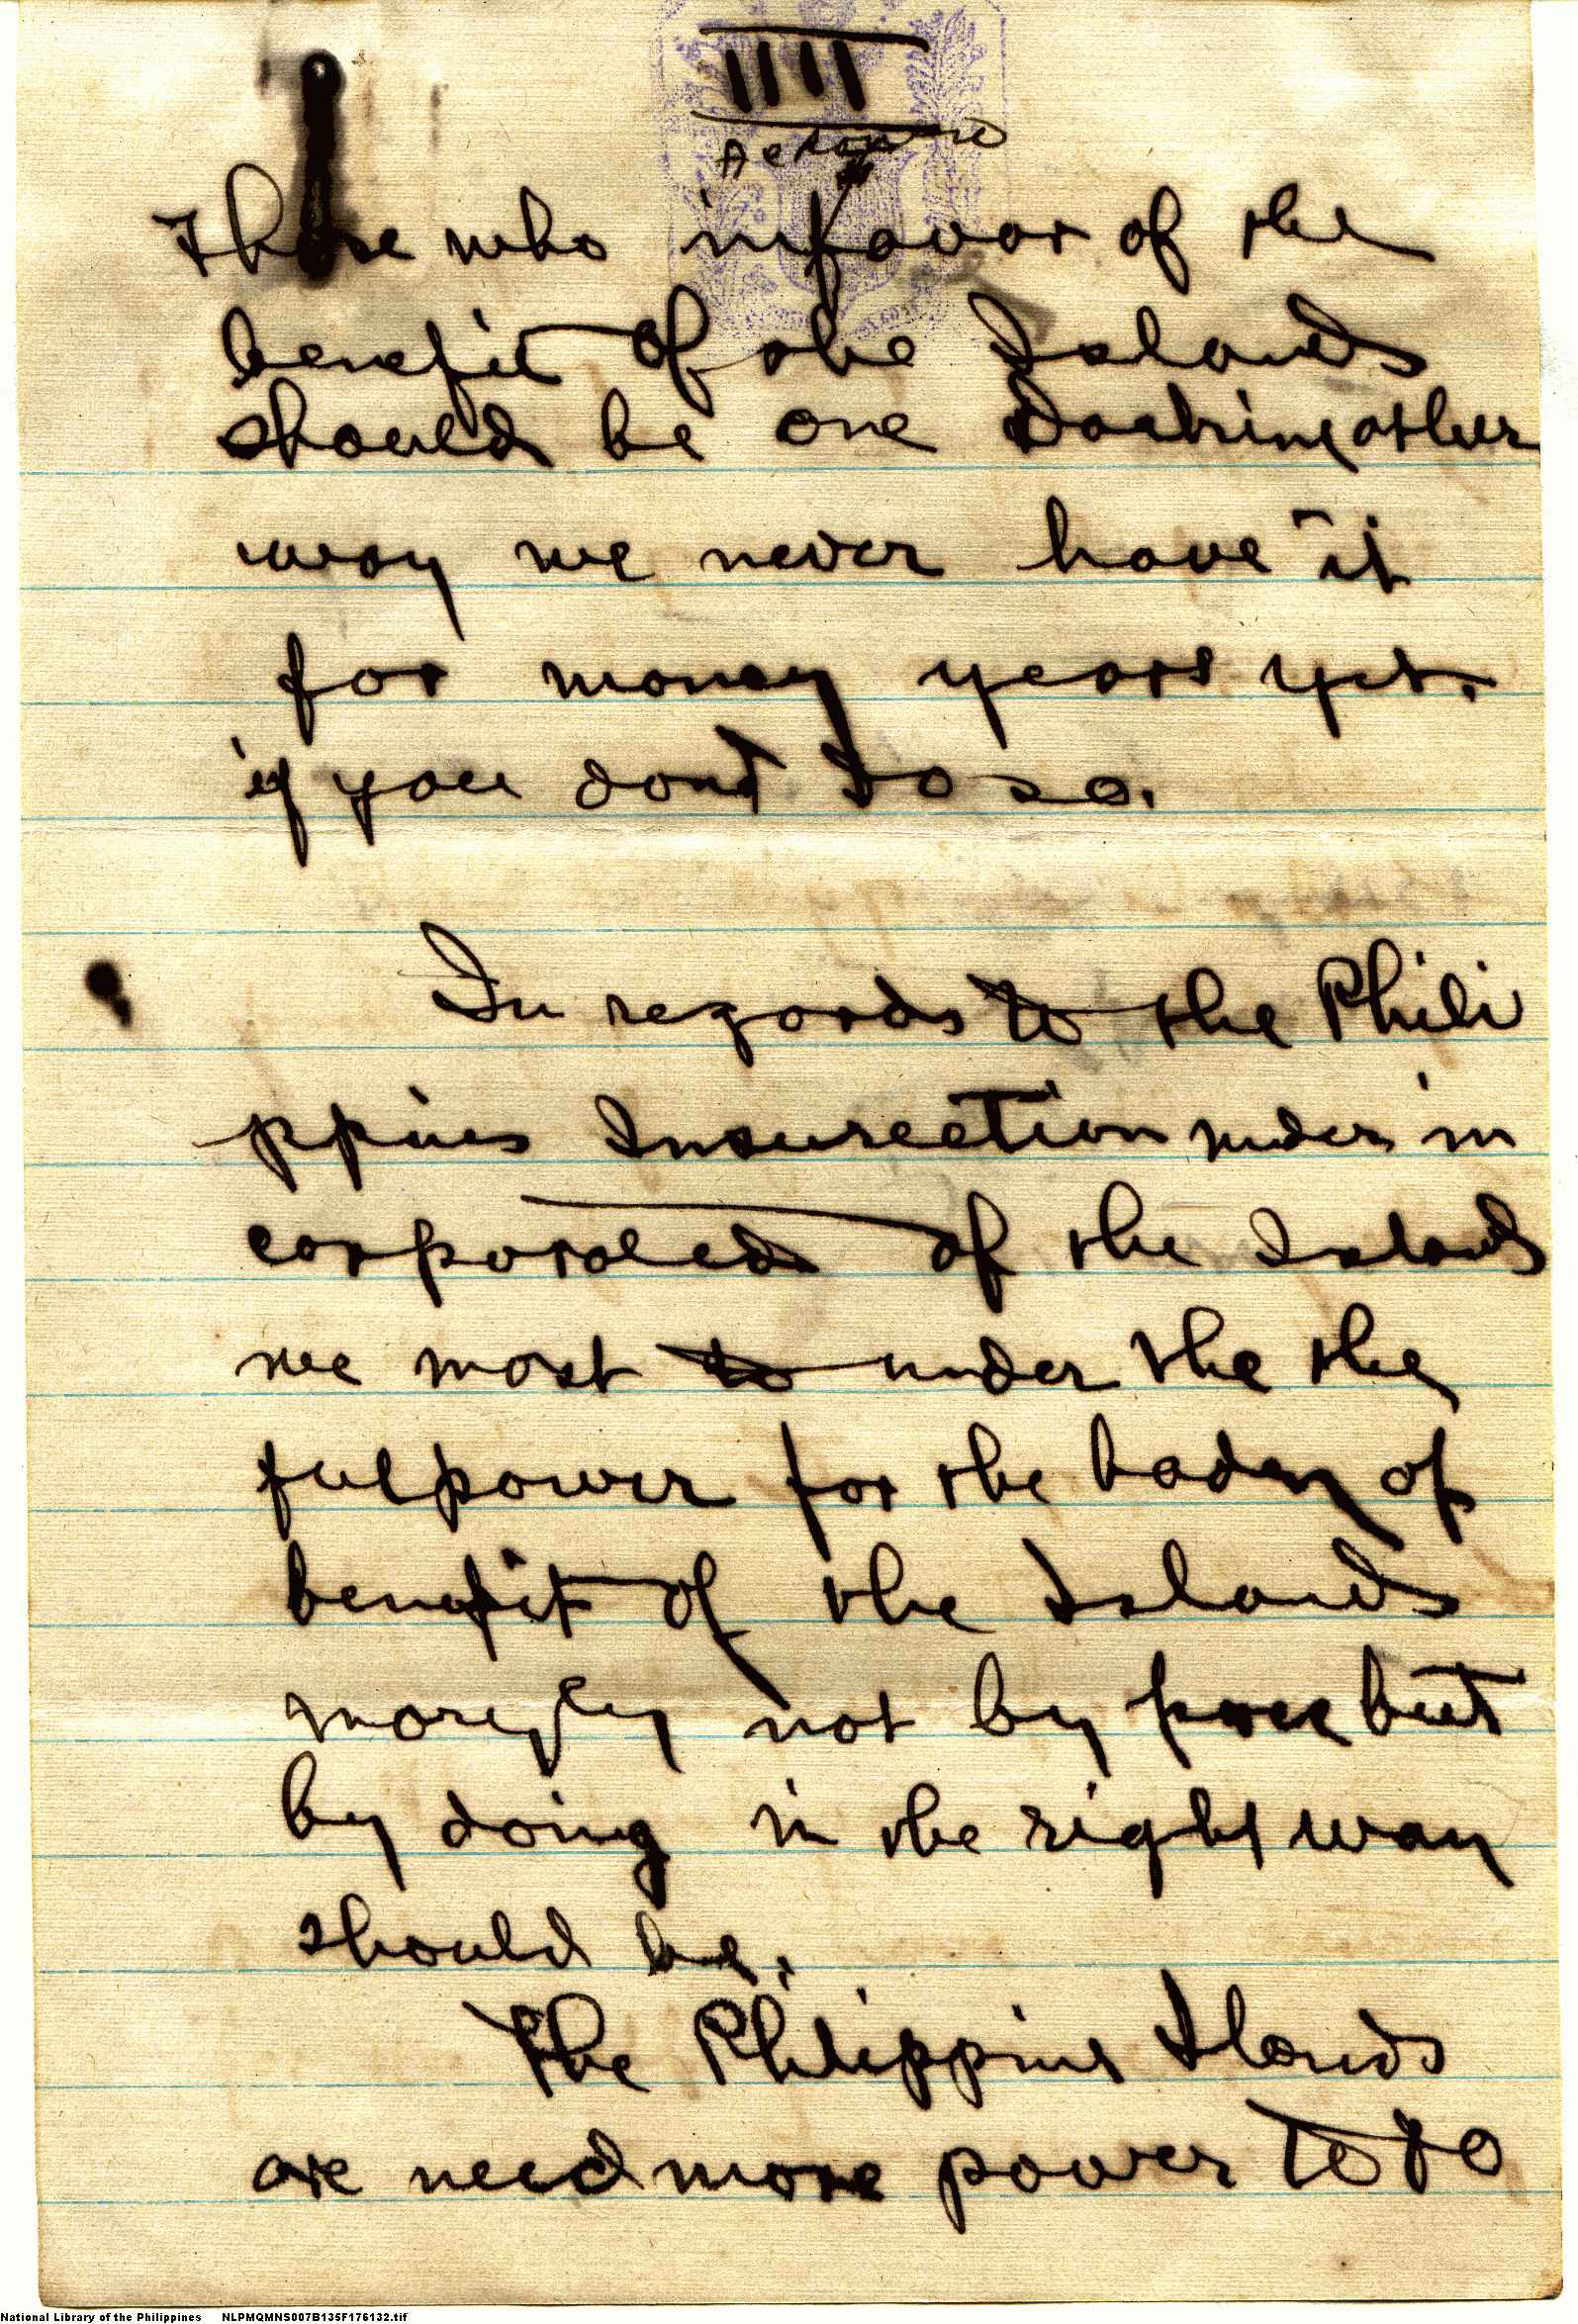 IIII
Those who in favor of the
benefit of the Islands
should be one Doctrine other
way we never have it
for money years yet.
if you dont do so.
In regards to the Phili
ppines Insurection under in
corporated of the Islands
we most to under the the
fulpower for the body of
benefit of the Islands
not by force but
by doing in the right way
should be.
The Philippine Ilands
are need more power to do
National Library of the Philippines NLPMQMNS007B135F176132.tif